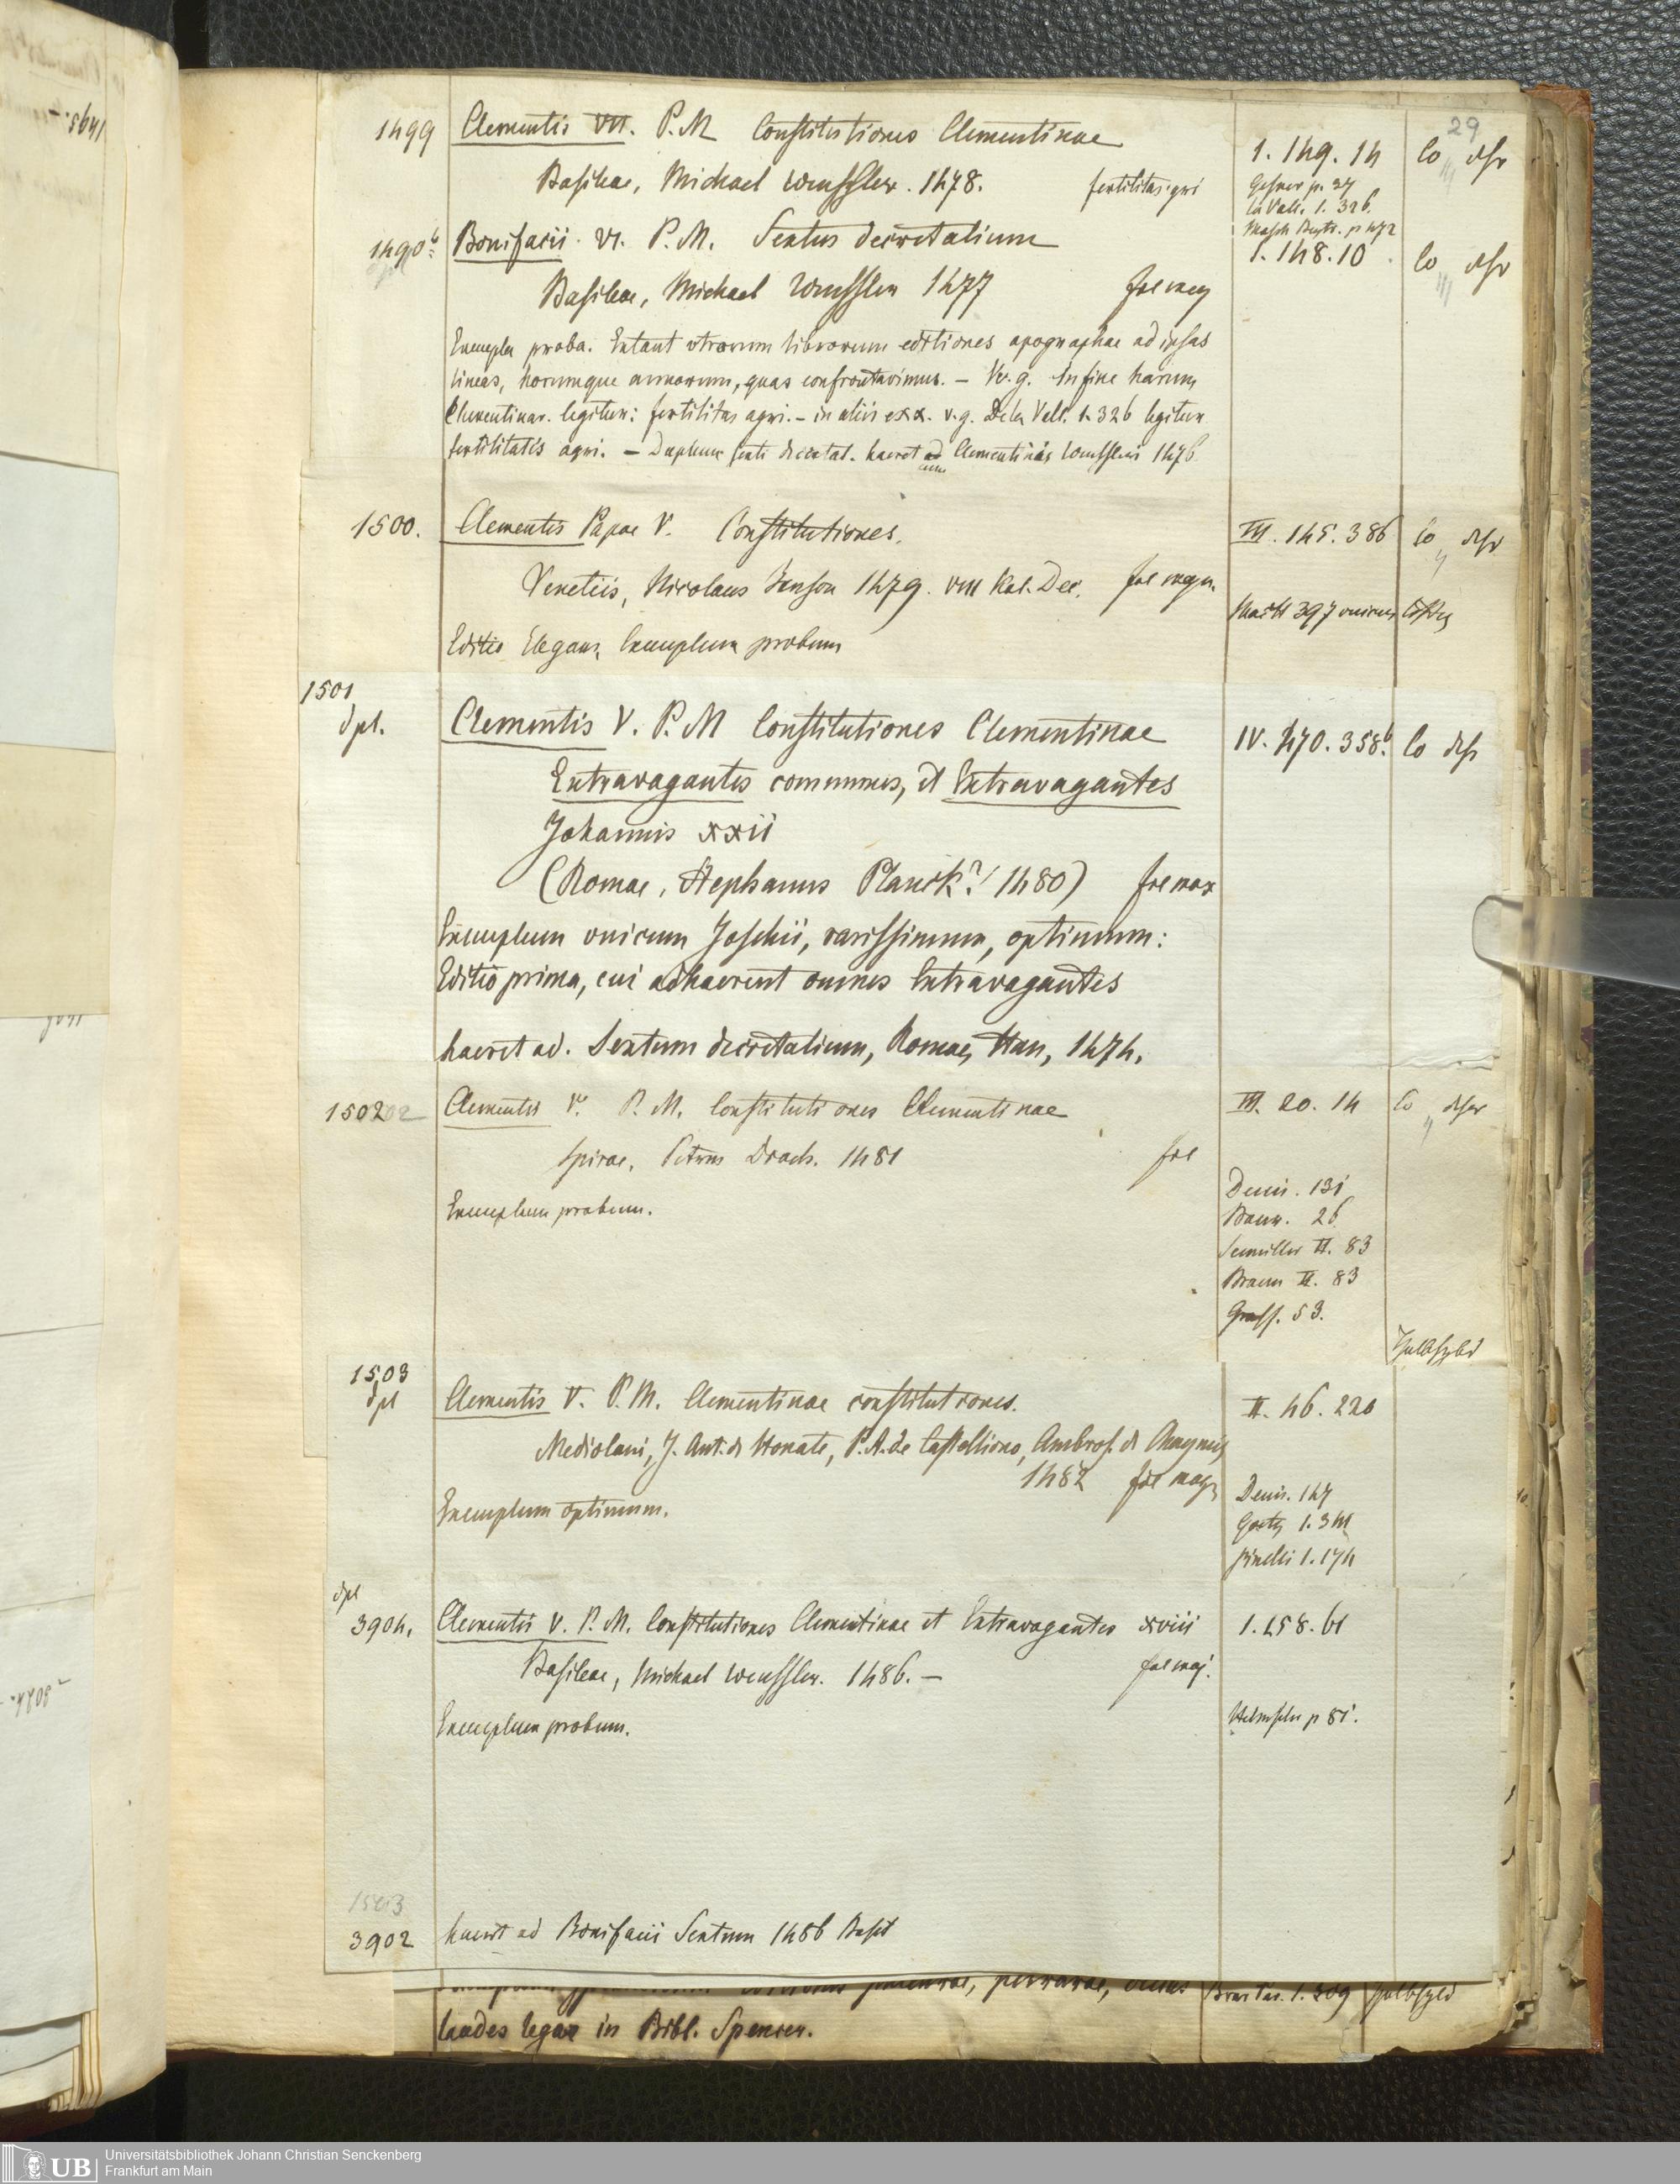 29
1499 Clementis VII. P. M Constitutiones Clementinae 1. 149. 14 Co
Basileae, Michael Wenssler. 1478. fertilitas gri Gesner p. 27
La Vall. 1. 326.
1490 b: Bonifacii. VI. P. M. Sextus decretalium 1. 148. 10 Co
Basileae, Michael Wenssler 1477 fol mag
Exempla proba. Extant utrorum librorum editiones apographae ad ipsas
lineas, horumque annorum, quas confrontavimus. – V. g. In fine harum
Clementinar. legitur: fertilitas agri. – in aliis exx. v. g. De la Vall. 1. 326 legitur
fertilitatis agri. – Duplum sexti decretal. haeret ad Clementinas Wenssleri 1476
cum
1500. Clementis Papae V. Constitutiones. III. 145. 386 Co
Venetiis, Nicolaus Jenson 1479. VIII Kal. Dec. fol magn.
Editio Elegans, Exemplum probum
1501
dpl. Clementis V. P. M Constitutiones Clementinae IV. 470. 358b. Co
Extravagantes communes, et Extravagantes
Johannis xxii
(Romae, Stephanus Planck? 1480) fol max
Exemplum unicum Joschii, rarissimum, optimum:
Editio prima, cui adhaerent omnes Extravagantes
haeret ad. Sextum decretalium, Romae, Han, 1474.
1502 02 Clementis V. P. M. Constitutiones Clementinae III. 20. 14 Co
Spirae, Petrus Drach. 1481 fol
Denis. 131
Exemplum probum. Baur. 26
Seemiller II. 83
Braun II. 83
Grass. 53.
Halbfzbd
1503
dpl Clementis V. P. M. Clementinae constitutiones. II. 46. 220
Mediolani, J. Ant. de Honate, P. A. de Castelliono, Ambros. de
1482 fol mag Denis. 147
Exemplum optimum. Goetz 1. 314
Pinelli 1. 174
dpl
3904. Clementis V. P. M. Constitutiones Clementinae et Extravagantes xviii 1. 158. 61
Basileae, Michael Wenssler. 1486. – fol maj.
Exemplum probum. p 81.
1503
3902 haeret ad Bonifacii Sextum 1486 Basil
perrarae, 1. 309 Halbfzbd
laudes legas in Bibl. Spencer.
UB Universitätsbibliothek Johann Christian Senckenberg
Frankfurt am Main